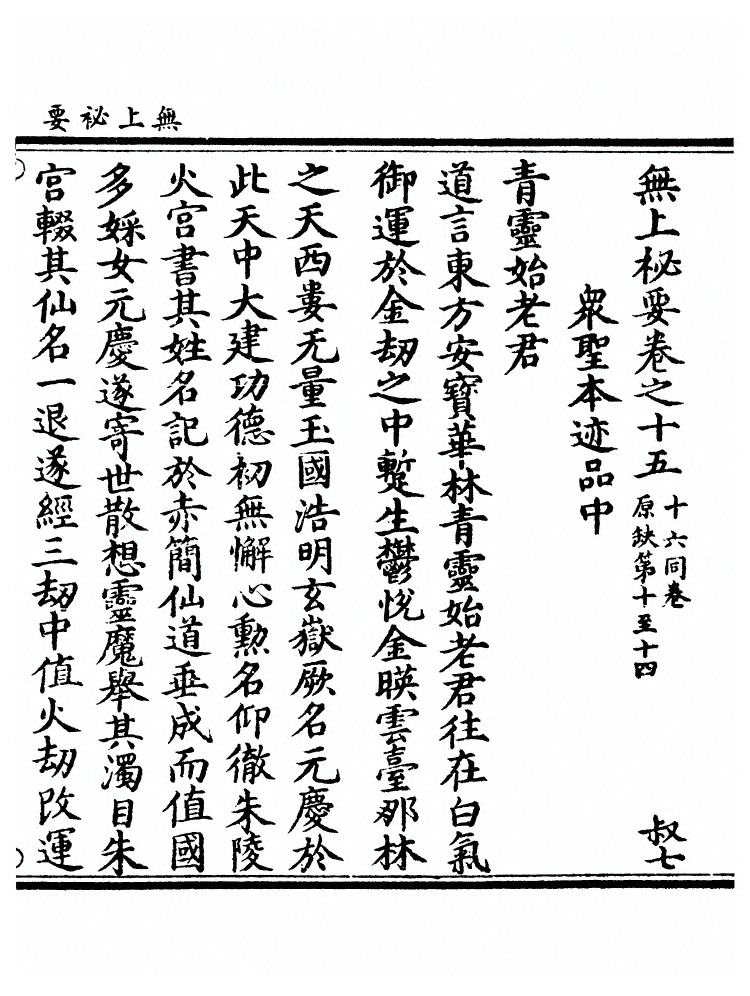 無上祕要
無上祕要卷之十五 十六同卷
原缺第十至十四 叔七
衆聖本迹品中
青靈始老君
道言東方安寶華林青靈始老君往在白氣
御運於金劫之中暫生鬱悅金映雲臺那林
之天西婁无量玉國浩明玄嶽厥名元慶於
此天中大建功德初無懈心勲名仰徹朱陵
火宮書其姓名記於赤簡仙道垂成而值國
多婇女元慶遂寄世散想靈魔舉其濁目朱
宮輟其仙名一退遂經三劫中值火劫改運